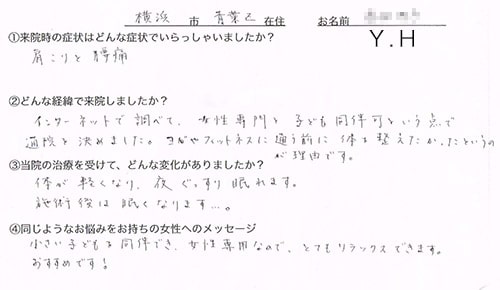 横浜 市 青葉区 在住 お名前
Y.H
①来院時の症状はどんな症状でいらっしゃいましたか？
肩こりと腰痛
②どんな経緯で来院しましたか？
インターネットで調べて、女性専門と子ども同伴可という点で
通院を決めました。ヨガやフィットネスに通う前に体を整えたかったというの
が理由です。
③当院の治療を受けて、どんな変化がありましたか？
体が軽くなり、夜ぐっすり眠れます。
施術後は眠くなります…。
④同じようなお悩みをお持ちの女性へのメッセージ
小さい子どもも同伴でき、女性専用なので、とてもリラックスできます。
おすすめです！